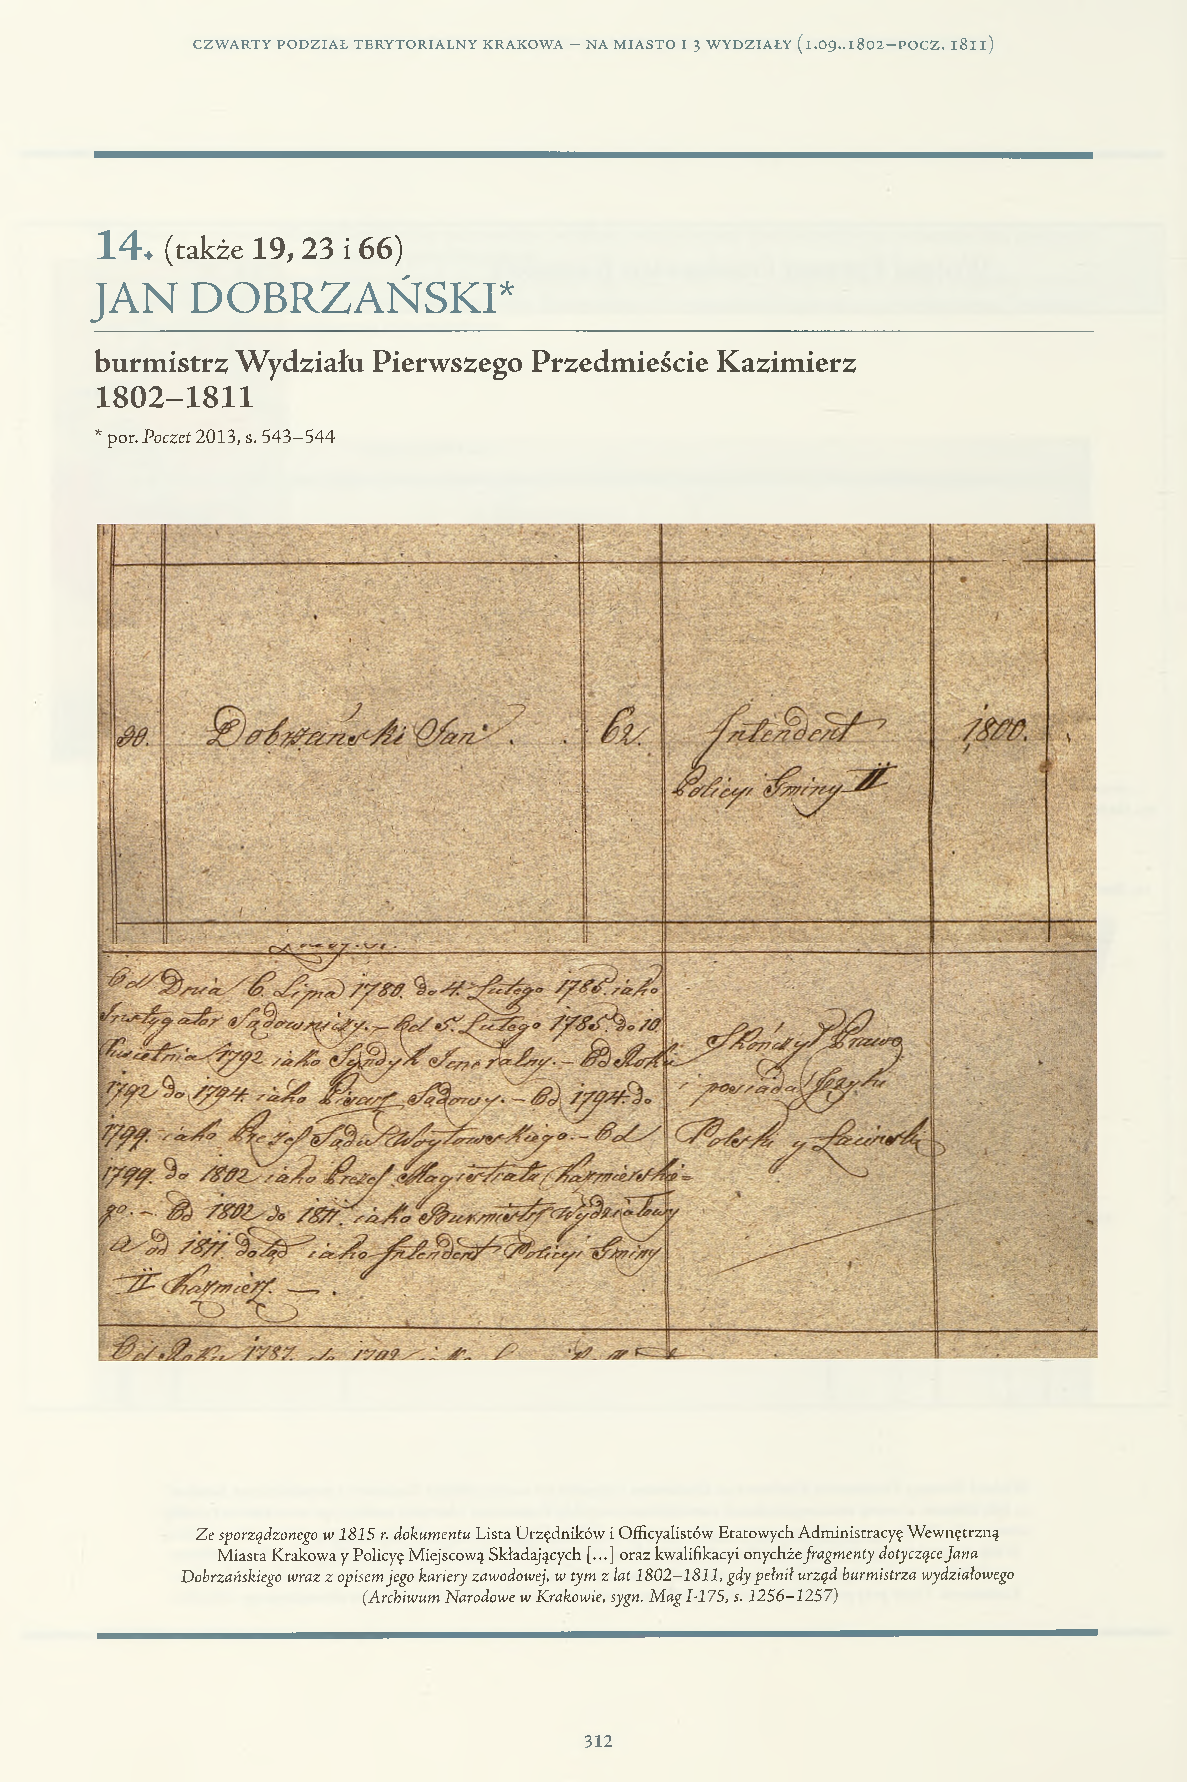 CZWARTY PODZIAŁ TERYTORIALNY KRAKOWA – NA MIASTO I 3 WYDZIAŁY (1.09..1802–POCZ. 1811)
14. (także 19, 23 i 66)
JAN DOBRZAŃSKI*
burmistrz Wydziału Pierwszego Przedmieście Kazimierz
1802–1811
* por. Poczet 2013, s. 543–544
Dobrzański Jan . . 62. Intendent 1800.
Policyi Gminy II
Od Dnia 6. Lipca 1780. do 4. Lutego 1785. iako
Instygator Sądowniczy. – Od 5. Lutego 1785. do 10
Kwietnia 1792 iako Syndyk Jeneralny. – Od Roku
1792 do 1794. iako Pisarz Sądowy. – Od 1794. do
1799. iako Prezes Sądu Woytowskiego. – Od
1799. do 1802 iako Prezes Magistratu Kazmierskie=
go. – Od 1802 do 1811. iako Burmistrz Wydziałowy
a od 1811. dotąd iako Intendent Policyi Gminy
II Kazmierz. — .
Skończył Prawo
i posiada Języki
Polski y Łaciński
Od Roku 1787. do 1792 iako
Ze sporządzonego w 1815 r. dokumentu Lista Urzędników i Officyalistów Etatowych Administracyę Wewnętrzną
Miasta Krakowa y Policyę Miejscową Składających [...] oraz kwalifikacyi onychże fragmenty dotyczące Jana
Dobrzańskiego wraz z opisem jego kariery zawodowej, w tym z lat 1802–1811, gdy pełnił urząd burmistrza wydziałowego
(Archiwum Narodowe w Krakowie, sygn. Mag I-175, s. 1256–1257)
312